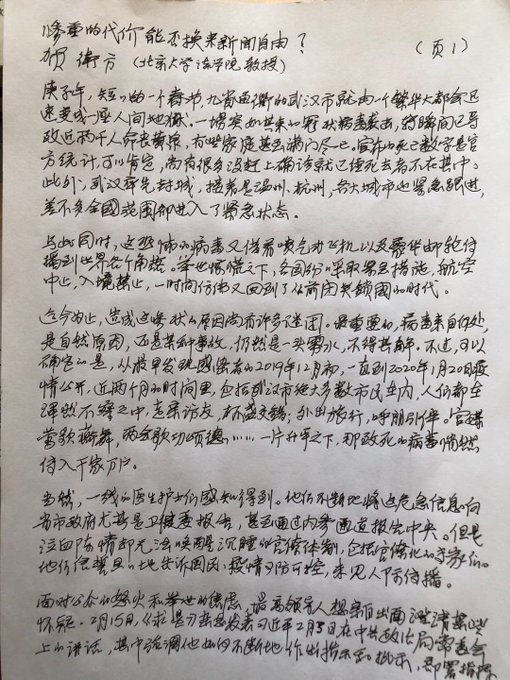 惨重的代价能否换来新闻自由？
（页1）
贺卫方（北京大学法学院教授）
庚子年，短短的一个春节，九省通衢的武汉市就由一个繁华大都会迅
速变成一座人间地狱。一场突如其来的冠状病毒袭击，转瞬间已导
致近两千人命丧黄泉，有些家庭甚至满门尽亡。宣布的死亡数字是官
方统计，可以肯定，尚有很多没赶上确诊就已经死去者不在其中。
此外，武汉率先封城，接着是温州、杭州，各大城市也紧急跟进，
差不多全国范围都进入了紧急状态。
与此同时，这恐怖的病毒又借着喷气式飞机以及豪华邮轮传
播到世界各个角落。举世惊慌之下，各国纷纷采取紧急措施，航空
中止，入境禁止，一时间仿佛又回到了从前闭关锁国的时代。
迄今为止，造成这场灾难的原因尚有许多谜团。最重要的，病毒来自何处，
是自然原因，还是某种事故，仍然是一头雾水，不得其解。不过，可以
确定的是，从最早发现感染者的2019年12月初，一直到2020年1月20日疫
情公开，近两个月的时间里，包括武汉市绝大多数市民在内，人们都在
浑然不觉之中，走亲访友，杯盏交错；外出旅行，呼朋引伴。官媒
莺歌燕舞，两会歌功颂德……一片升平之下，那致死的病毒悄然
传入千家万户。
当然，一线的医生护士们感知得到。他们不断地将这危急信息向
省市政府尤其是卫健委报告，甚至通过内参通道报告中央。但是
泣血陈情却无法唤醒沉睡的官僚体制，包括官僚化的专家们。
他们信誓旦旦地告诉国人：疫情可防可控，未见人际传播。
面对公众的怒火和举世的焦虑，最高领导人想亲自出面澄清某些
怀疑。2月15日，《求是》杂志发表习近平2月3日在中共政治局常委会
上的讲话，其中强调他如何不断地作出指示和批示，部署指挥